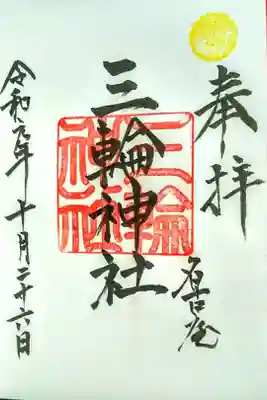 奉拝
名古屋
三輪神社
三輪神社
令和元年十月二十六日